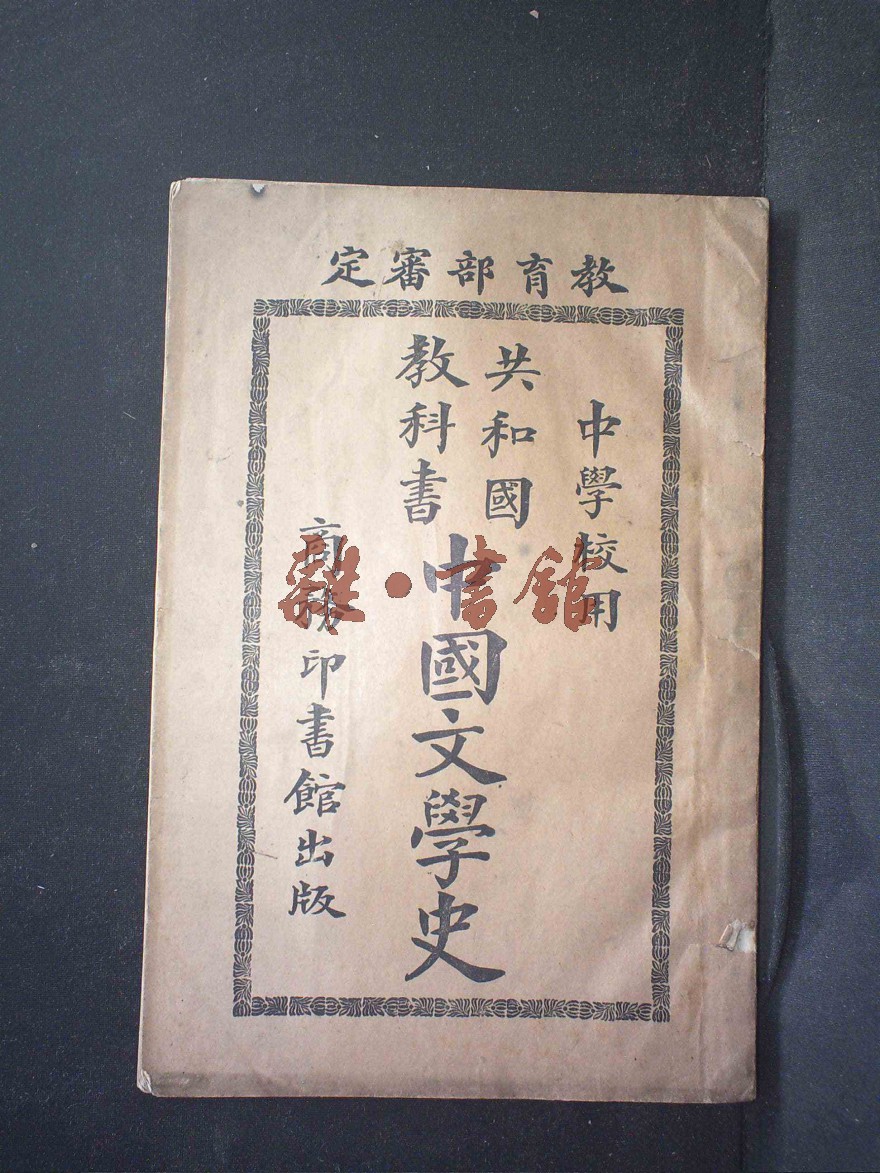 教育部審定
中學校用
共和國
教科書
中國文學史
商務印書館出版
雜·書館